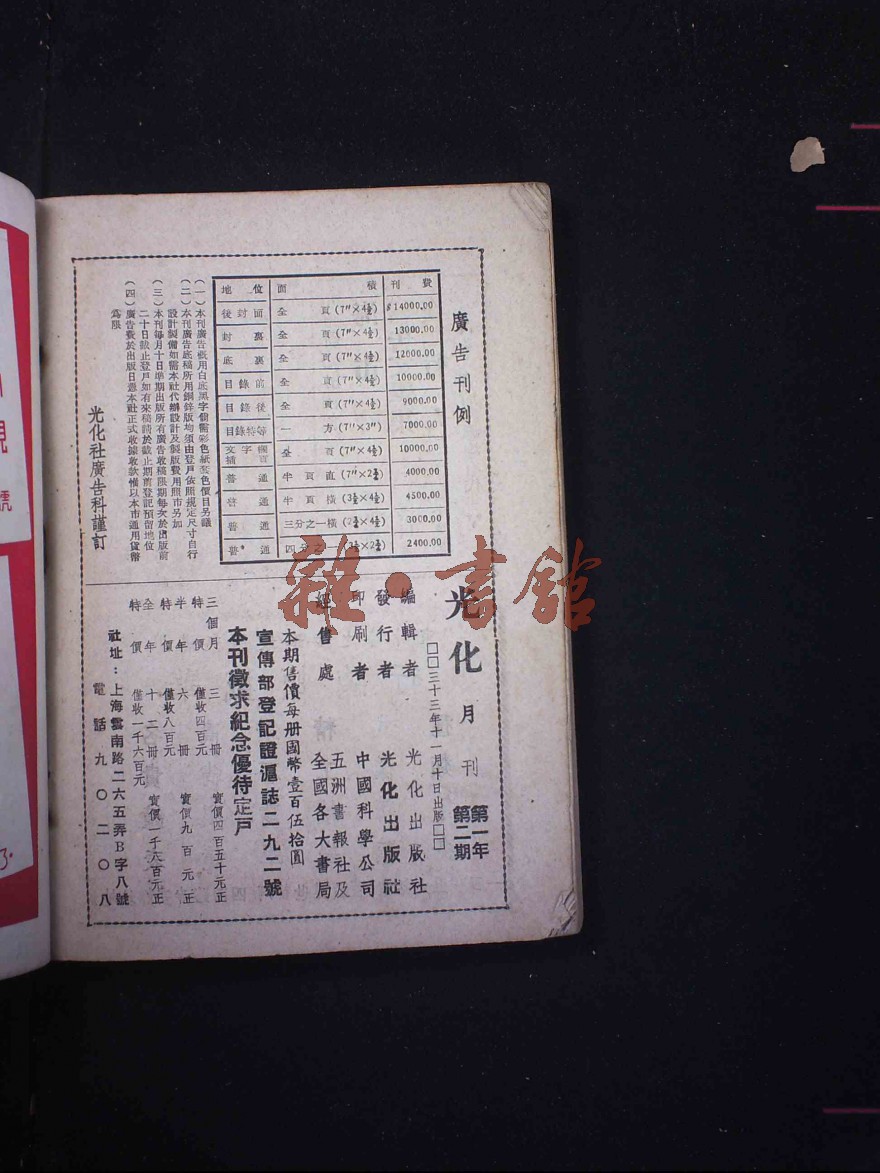 廣告刊例
地位 面積 刊費
後封面 全頁(7"×4½) $14000.00
封裏 全頁(7"×4½) 13000.00
底裏 全頁(7"×4½) 12000.00
目錄前 全頁(7"×4½) 10000.00
目錄後 全頁(7"×4½) 9000.00
目錄特等 一方(7"×3") 7000.00
文字欄 全頁(7"×4½) 10000.00
普通 半頁直(7"×2¼) 4000.00
普通 半頁橫(3½×4½) 4500.00
普通 三分之一橫(2¼×4½) 3000.00
普通 四分之一(3½×2¼) 2400.00
(一)本刊廣告概用白底黑字倘需彩色紙套色價目另議
(二)本刊廣告底稿所用銅鋅版均須由登戶依照規定尺寸自行
設計製備如需本社代辦設計及製版費用照市另加
(三)本刊每月十日準期出版所有廣告收稿限期每次於出版前
二十日截止登戶如有來稿請於截止期前登記預留地位
(四)廣告費於出版日憑本社正式收據收款惟以本市通用貨幣
爲限
光化社廣告科謹訂
光化月刊
第一年
第二期
□□三十三年十一月十日出版□□
編輯者 光化出版社
發行者 光化出版社
印刷者 中國科學公司
經售處 五洲書報社及
全國各大書局
本期售價每册國幣壹百伍拾圓
宣傳部登記證滬誌二九二號
本刊徵求紀念優待定戶
三個月 三冊 實價四百五十元正
特價 僅收四百元
半年 六冊 實價九百元正
特價 僅收八百元
全年 十二冊 實價一千八百元正
特價 僅收一千六百元
社址：上海雲南路二六五弄B字八號
電話九〇二〇八
雜·書館
號